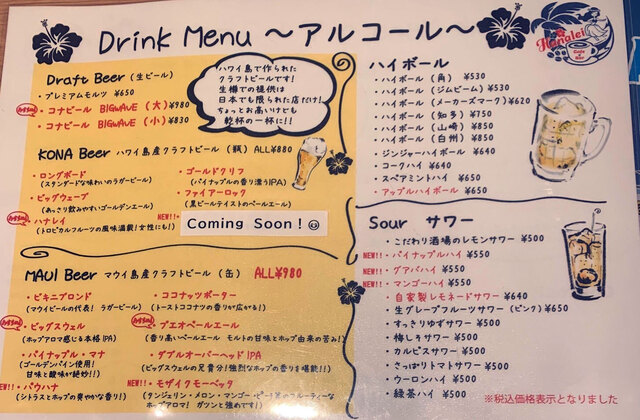 Drink Menu 〜アルコール〜
Hanalei
Cafe & Bar
Draft Beer (生ビール)
・プレミアムモルツ ¥650
おすすめ
・コナビール BIGWAVE (大) ¥980
・コナビール BIGWAVE (小) ¥830
ハワイ島で作られた
クラフトビールです!
生樽での提供は
日本でも限られた店だけ!
ちょっとお高いけども
乾杯の一杯に!!
KONA Beer ハワイ島産クラフトビール (瓶) ALL¥880
・ロングボード
(スタンダードな味わいのラガービール)
・ビッグウェーブ
(あっさり飲みやすいゴールデンエール)
おすすめ
・ハナレイ
(トロピカルフルーツの風味満載!女性にも!)
・ゴールドクリフ
(パイナップルの香り漂うIPA)
・ファイアーロック
(黒ビールテイストのペールエール)
NEW!!
Coming Soon!
MAUI Beer マウイ島産クラフトビール (缶) ALL¥980
・ビキニブロンド
(マウイビールの代表! ラガービール)
おすすめ
・ビッグスウェル
(ホップアロマ感じる本格IPA)
・パイナップル・マナ
(ゴールデンパイン使用!
甘味と酸味が絶妙!!)
NEW!!
・パウハナ
(シトラスとホップの爽やかな香り)
・ココナッツポーター
(トーストココナツの香りが広がる!)
おすすめ
・プエオペールエール
(香り高いペールエール モルトの甘味とホップ由来の苦み!)
・ダブルオーバーヘッドIPA
(ビッグスウェルの兄貴分!強烈なホップの香りを堪能!!)
NEW!!
・モザイクモーベッタ
(タンジェリン・メロン・マンゴー・ピーチ系のフルーティーな
ホップアロマ! ガツンと強めです!)
ハイボール
・ハイボール (角) ¥530
・ハイボール (ジムビーム) ¥530
・ハイボール (メーカーズマーク) ¥620
・ハイボール (知多) ¥750
・ハイボール (山崎) ¥850
・ハイボール (白州) ¥850
・ジンジャーハイボール ¥640
・コークハイ ¥640
・スペアミントハイ ¥650
・アップルハイボール ¥650
Sour サワー
・こだわり酒場のレモンサワー ¥500
NEW!!・パイナップルハイ ¥550
NEW!!・グアバハイ ¥550
NEW!!・マンゴーハイ ¥550
・自家製レモネードサワー ¥640
・生グレープフルーツサワー (ピンク) ¥650
・すっきりゆずサワー ¥500
・梅しそサワー ¥500
・カルピスサワー ¥500
・さっぱりトマトサワー ¥500
・ウーロンハイ ¥500
・緑茶ハイ ¥500
※税込価格表示となりました